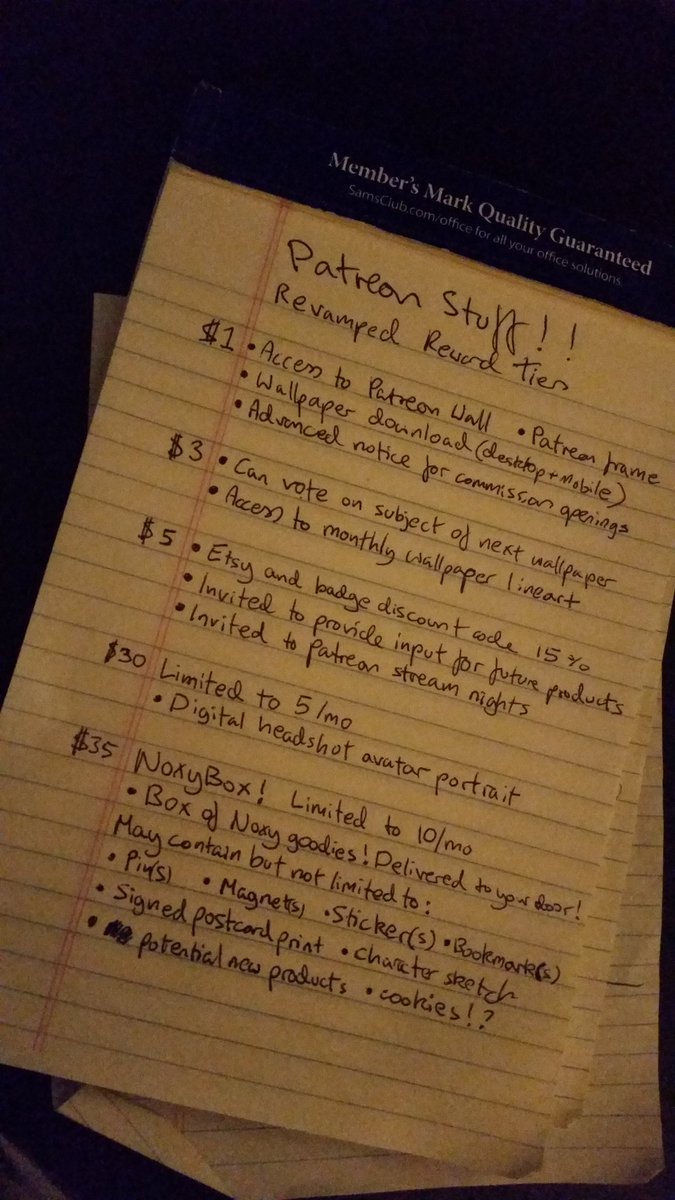 Member's Mark Quality Guaranteed
SamsClub.com/office for all your office solutions.
Patreon Stuff!!
Revamped Reward Tiers
$1 • Access to Patreon Wall • Patreon frame
• Wallpaper download (desktop + Mobile)
• Advanced notice for commission openings
$3 • Can vote on subject of next wallpaper
• Access to monthly wallpaper lineart
$5 • Etsy and badge discount code 15%
• Invited to provide input for future products
• Invited to Patreon stream nights
$30 Limited to 5/mo
• Digital headshot avatar portrait
$35 NoxyBox! Limited to 10/mo
• Box of Noxy goodies! Delivered to your door!
May contain but not limited to:
• Pin(s) • Magnet(s) • Sticker(s) • Bookmark(s)
• Signed postcard print • character sketch
• potential new products • cookies!?